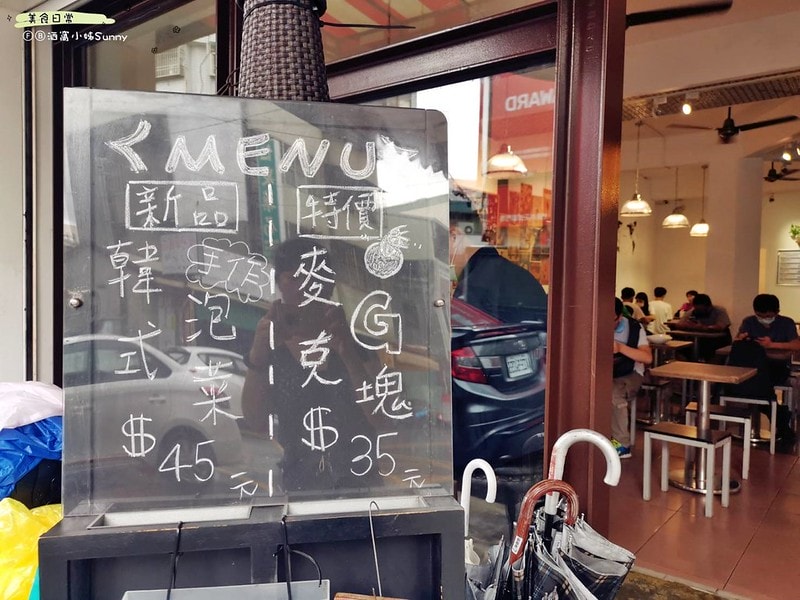 美食日常
ⒻⒷ酒窩小姊Sunny
MENU
新品
韓式
手作
泡菜
$45元
特價
麥克
G塊
$35元
WARD